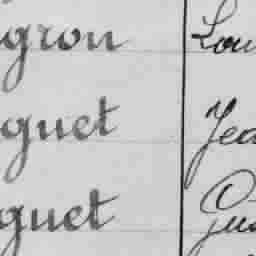 gron Lou
guet Jea
guet Gus